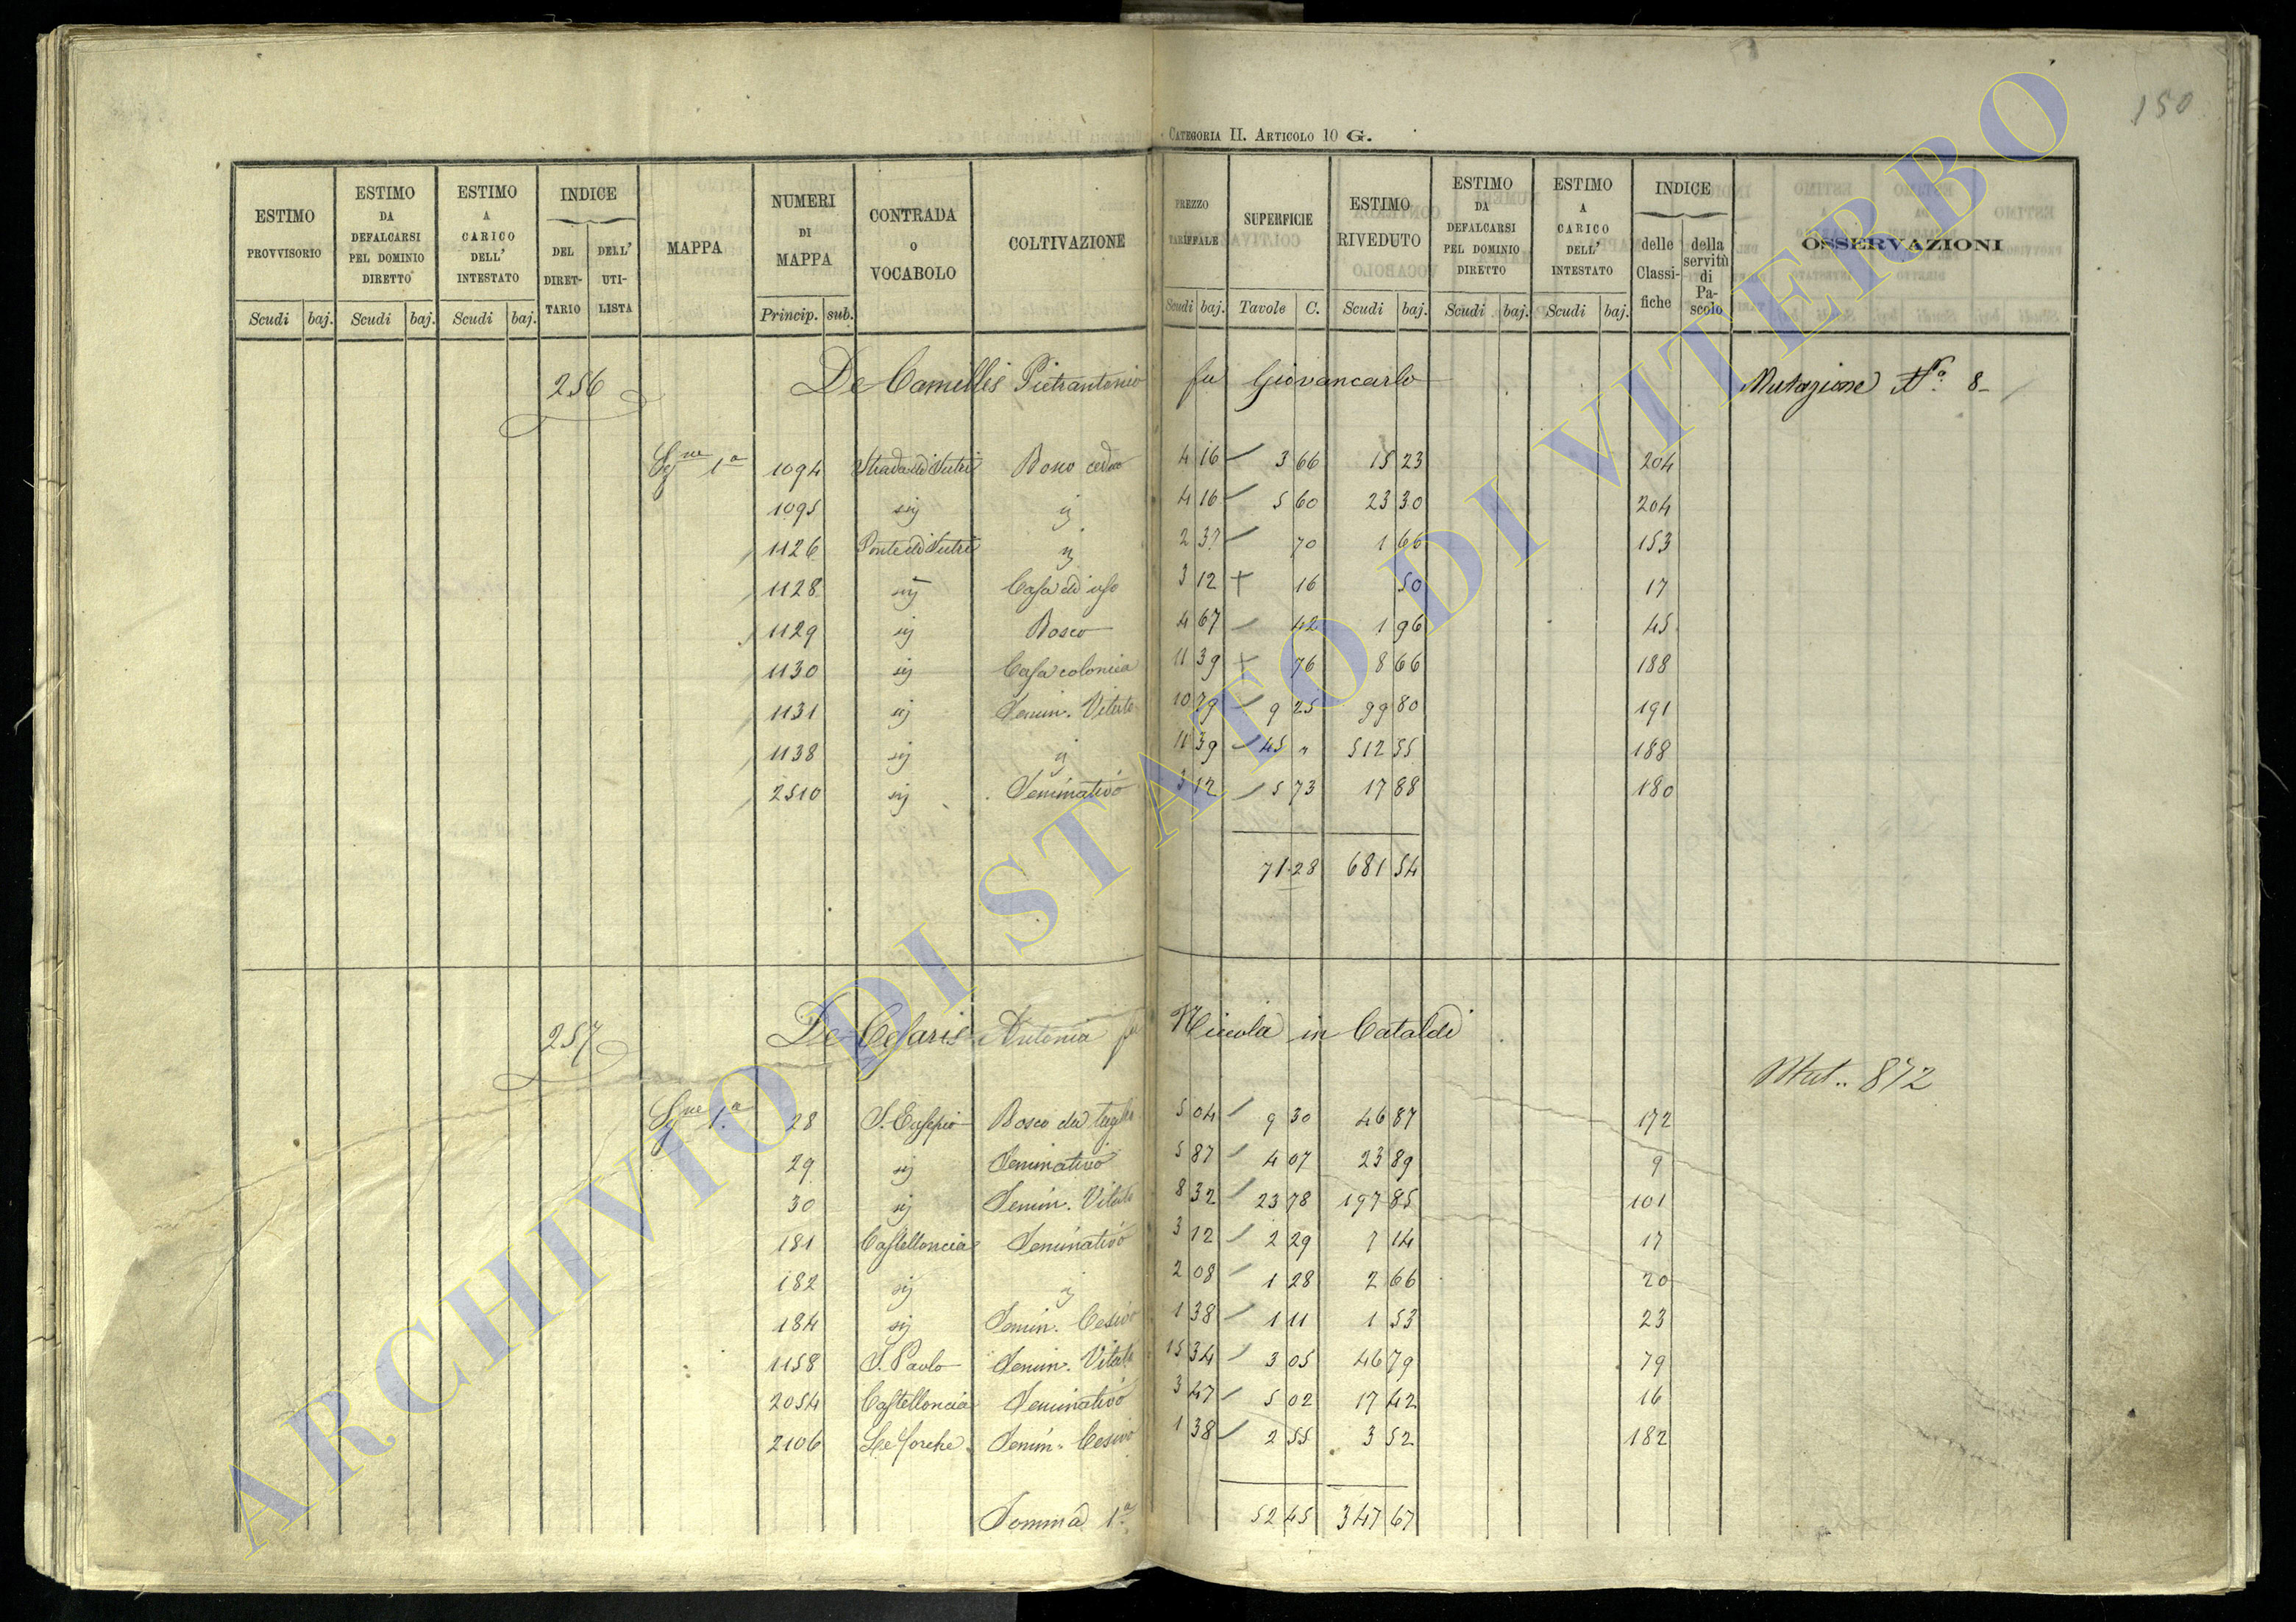 150
CATEGORIA II. ARTICOLO 10 G.
ESTIMO PROVVISORIO Scudi baj.
ESTIMO DA DEFALCARSI PEL DOMINIO DIRETTO Scudi baj.
ESTIMO A CARICO DELL' INTESTATO Scudi baj.
INDICE DEL DIRETTARIO DELL' UTILISTA
MAPPA
NUMERI DI MAPPA Princip. sub.
CONTRADA O VOCABOLO
COLTIVAZIONE
PREZZO TARIFFALE Scudi baj.
SUPERFICIE Tavole C.
ESTIMO RIVEDUTO Scudi baj.
ESTIMO DA DEFALCARSI PEL DOMINIO DIRETTO Scudi baj.
ESTIMO A CARICO DELL' INTESTATO Scudi baj.
INDICE delle Classifiche della servitù di Pascolo
OSSERVAZIONI
256 De Camillis Pietrantonio fu Giovancarlo Mutazione Nº 8
Sne 1a 1094 Strada di Sutri Bosco ceduo 4 16 3 66 15 23 204
1095 sij ij 4 16 5 60 23 30 204
1126 Ponte di Sutri ij 2 37 70 1 66 153
1128 sij Casa di uso 3 12 + 16 50 17
1129 sij Bosco 4 67 42 1 96 45
1130 sij Casa colonica 11 39 + 76 8 66 188
1131 sij Semin. Vitato 10 79 9 25 99 80 191
1138 sij ij 11 39 45 " 512 55 188
2510 sij Seminativo 3 12 5 73 17 88 180
71 28 681 54
257 De Cesaris Antonia fu Niccola in Cataldi
Mut.. 872
Sne 1.a 28 S. Eusepio Bosco da taglio 5 04 9 30 46 87 172
29 sij Seminativo 5 87 4 07 23 89 9
30 sij Semin. Vitato 8 32 23 78 197 85 101
181 Castelloncia Seminativo 3 12 2 29 7 14 17
182 sij ij 2 08 1 28 2 66 20
184 sij Semin. Cesivo 1 38 1 11 1 53 23
1158 S. Paolo Semin. Vitato 15 34 3 05 46 79 79
2054 Castelloncia Seminativo 3 47 5 02 17 42 16
2106 Le forche Semin. Cesivo 1 38 2 55 3 52 182
Somma 1a 52 45 347 67
ARCHIVIO DI STATO DI VITERBO